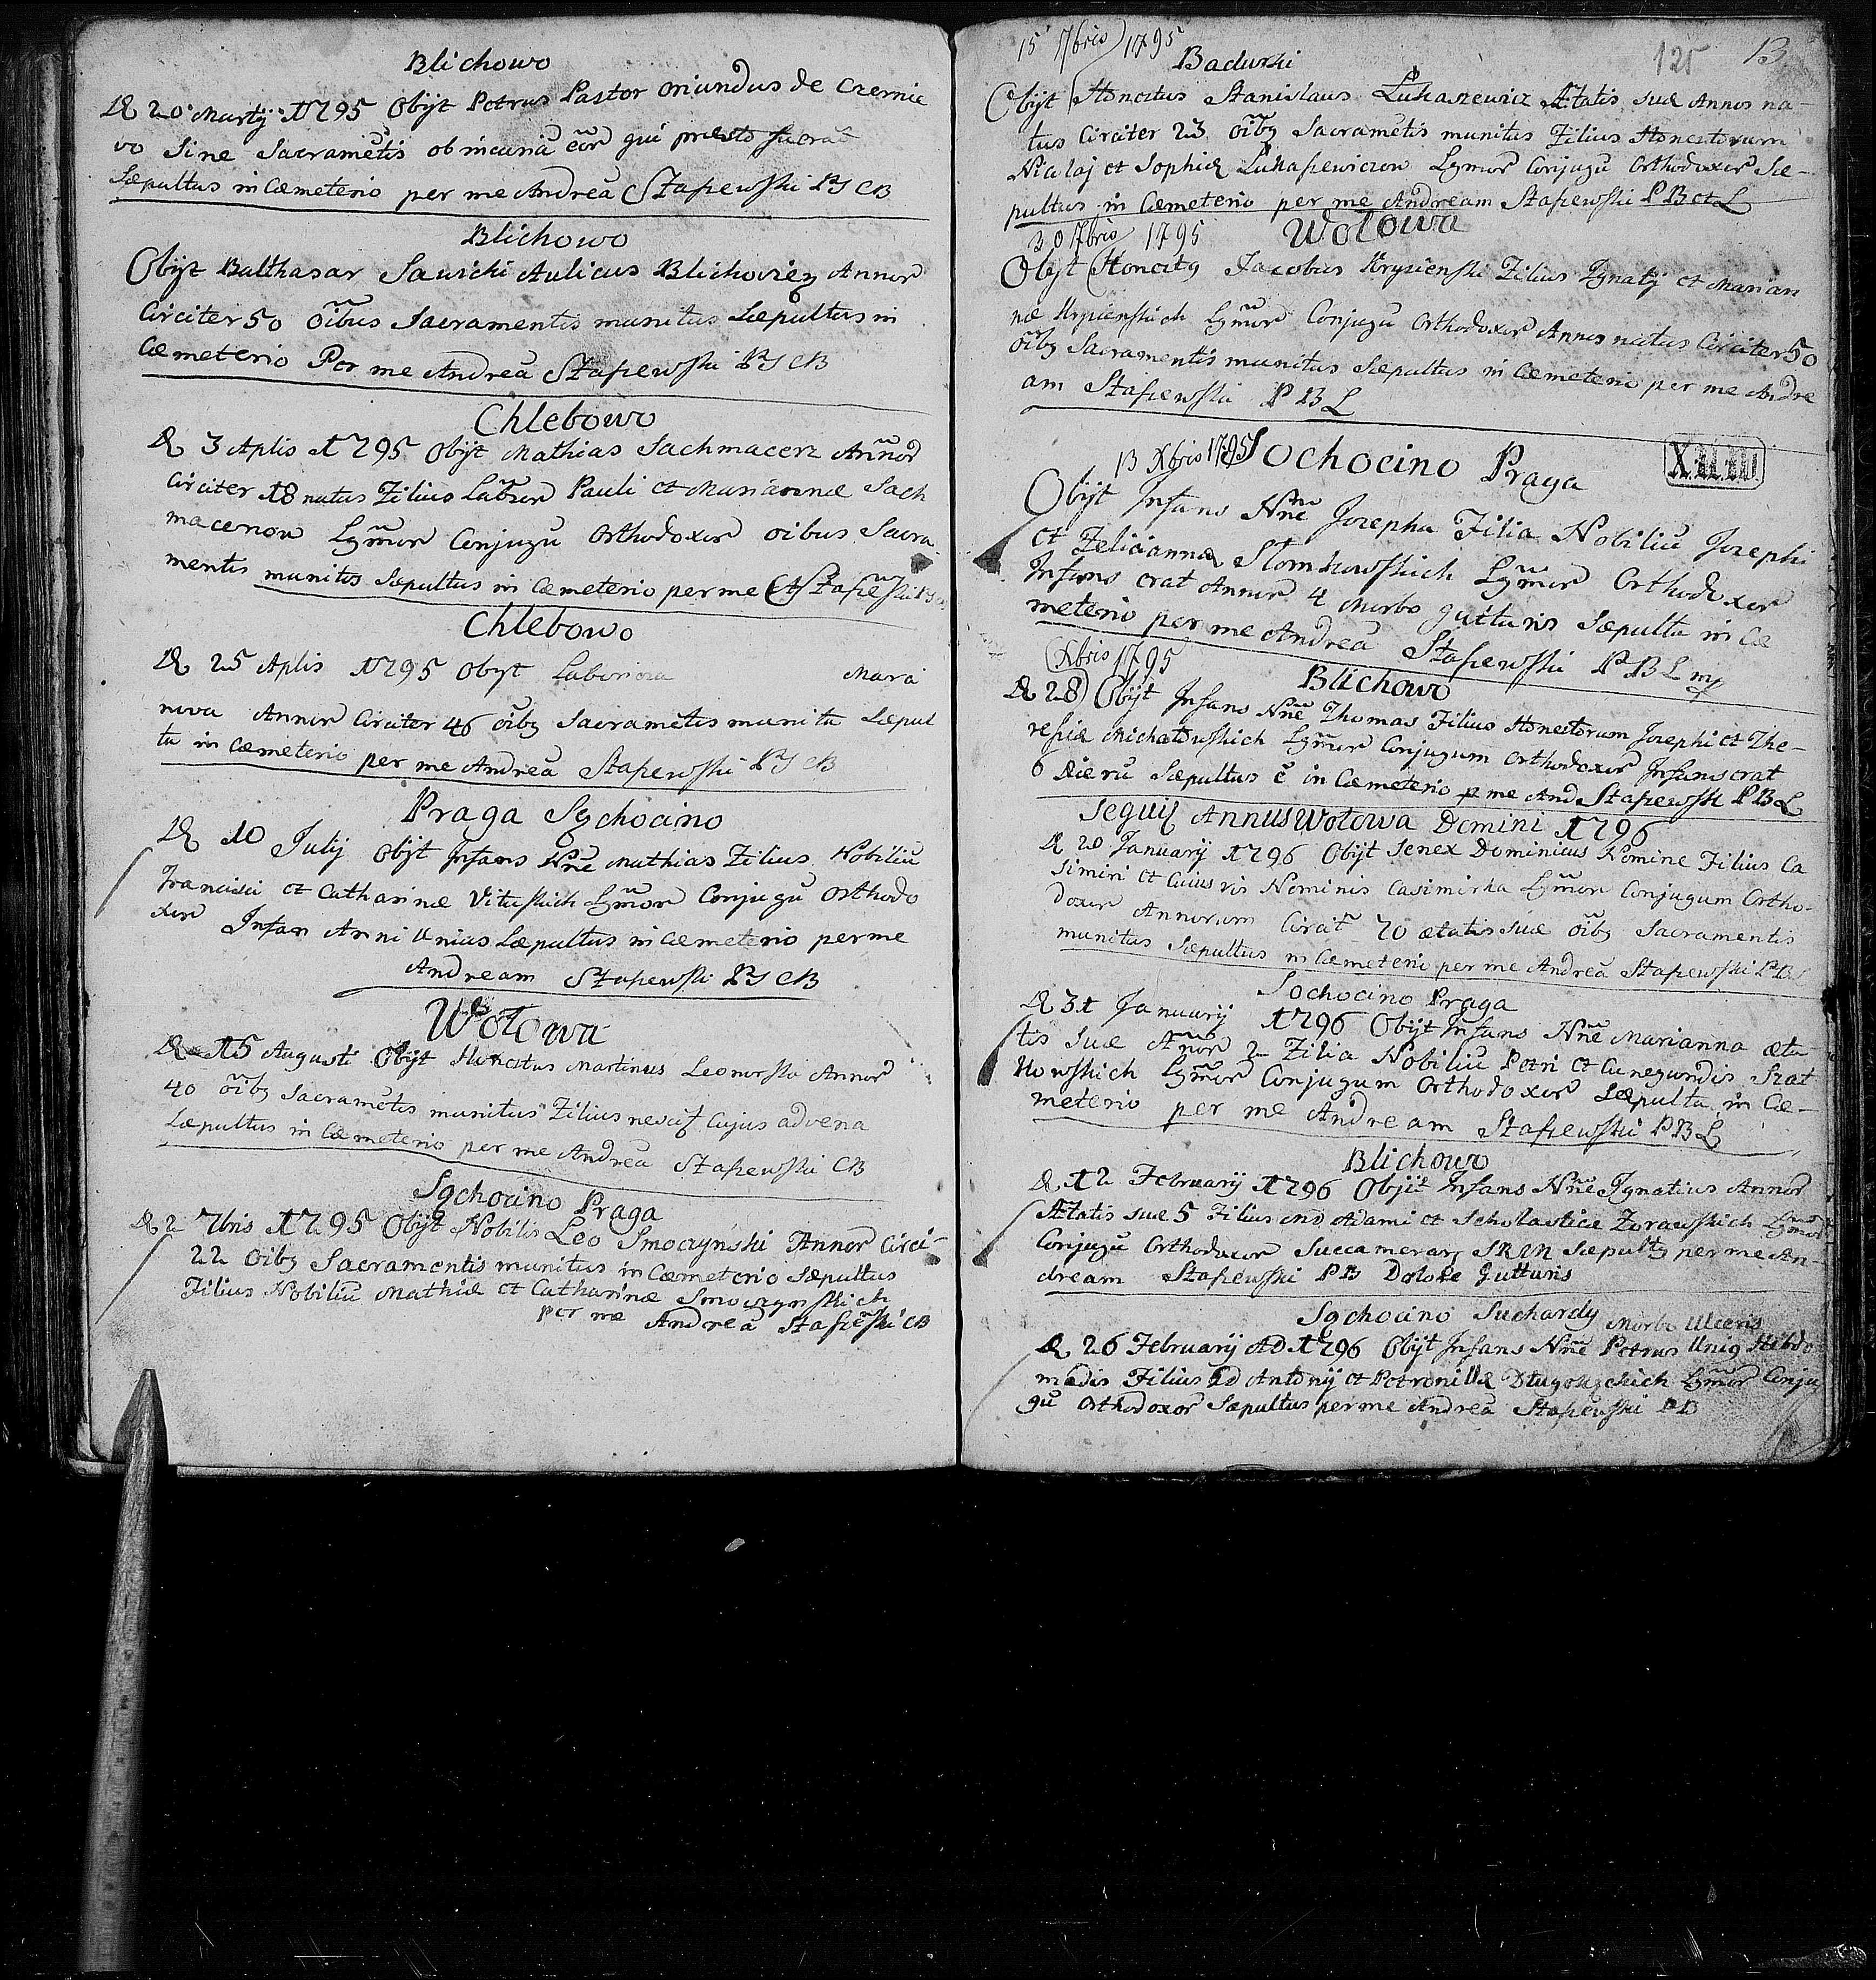 Blichowo
D 20 Martij 1795 Obijt Petrus Pastor oriundus de Czernie
vo Sine Sacramẽtis ob incuriã eor̃ qui præsto fuerãt
Sæpultus in Cæmeterio per me Andreã Stasiewski PS CB
Blichowo
Obijt Balthasar Sawicki Aulicus Blichovien Annor
Circiter 50 oĩbus Sacramentis munitus Sæpultus in
Cæmeterio Per me Andreã Stasiewski PS CB
Chlebowo
D 3 Aplis 1795 Obijt Mathias Sachmacerz Añnor
Circiter 18 natus Filius Labor Pauli et Mariannæ Sach
macerzow Lgm̃or Conjugũ Orthodoxor oibus Sacra
mentis munitus Sæpultus in Cæmeterio per me A Stasiewski
Chlebowo
D 25 Aplis 1795 Obyt Laboriosa Mara
nova Annor Circiter 46 oĩbg Sacramẽtis munita Sæpul
ta in Cæmeterio per me Andreã Stasiewski PS CB
Praga Sochocino
D 10 Julij Obijt Infans Nñe Mathias Filius Nobiliũ
Francisci et Catharinæ Vituskich Lgm̃or Conjugũ Orthodo
xor Infan Anni Unius Sæpultus in Cæmeterio per me
Andream Stasiewski PS CB
Wołowa
D 15 Augusti Obijt Honestus Martinus Leonorski Annor
40 oĩbg Sacramẽtis munitus Filius nescit Cujus advena
Sæpultus in Cæmeterio per me Andreã Stasiewski CB
Sochocino Praga
D 2 7bris 1795 Obijt Nobilis Leo Smoczyński Annor Circi-
22 Oibg Sacramentis munitus in Cæmeterio Sæpultus
Filius Nobiliũ Mathiæ et Catharinæ Smoczynskich
per me Andreã Stasiewski CB
15 7bris 1795
125 13
Badurki
Obijt Honestus Stanislaus Łukaszewicz Ætatis suæ Annos na-
tus Circiter 23 oĩbg Sacramẽtis munitus Filius Honestorum
Nicolaj et Sophiæ Łukasiewiczow Lgmor Conjugũ Orthodoxor Sæ-
pultus in Cæmeterio per me Andream Stasiewski PB et L
30 7bris 1795 Wołowa
Obijt Honestg Jacobus Krysienski Filius Ignatij et Marian
næ Krysienskich Lgm̃or Conjugũ Orthodoxor Annos natus Circiter 50
oĩbg Sacramentis munitus Sæpultus in Cæmeterio per me Andre
am Stasiewski PBL
13 Xbris 1795 Sochocino Praga
Obijt Infans Nñe Josepha Filia Nobiliũ Josephi
et Felicianna Słomkowskich Lgm̃or Orthodoxor
Infans erat Annor 4 Morbo gutturis Sæpulta in Cæ
meterio per me Andreã Stasiewski PBL mp
Xbris 1795
Blichowo
D 28 Obijt Infans Nñe Thomas Filius Honestorum Josephi et The-
resiæ Michałowskich Lgm̃or Conjugum Orthodoxor Infans erat
6 Dierũ Sæpultus ẽ in Cæmeterio p me And Stasiewski PBL
Sequit Annus Wołowa Domini 1796
D 20 Januarij 1796 Obijt Senex Dominicus Nomine Filius Ca
simiri et Cuiusvis Nominis Casimirka Lgm̃or Conjugum Ortho-
doxor Annorum Circit̃ 70 ætatis suæ oĩbg Sacramentis
munitus Sæpultus in Cæmeterio per me Andreã Stasiewski PB
Sochocino Praga
D 31 Januarij 1796 Obijt Infans Nñe Marianna æta
tis suæ Añor 2 Filia Nobiliũ Petri et Cunegundis Szat
kowskich Lgm̃or Conjugum Orthodoxor Sæpulta in Cæ-
meterio per me Andream Stasiewski PBL
Blichowo
D 12 February 1796 Objit Infans Nñe Ignatius Annor
Ætatis suæ 5 Filius Adami et Scholasticæ Zorawskich Lgmor
Conjugũ Orthodoxor Succamerarij Sæpultg per me An-
dream Stasiewski PB Dolore Gutturis
Sochocino Suchardy Morbi Ulceris
D 26 February AD 1796 Obijt Infans Nñe Petrus Unig Hebdo
madis Filius Antonij et Petronillæ Długołęckich Lgm̃or Conju
gũ Orthodoxor Sæpultus per me Andreã Stasiewski PB